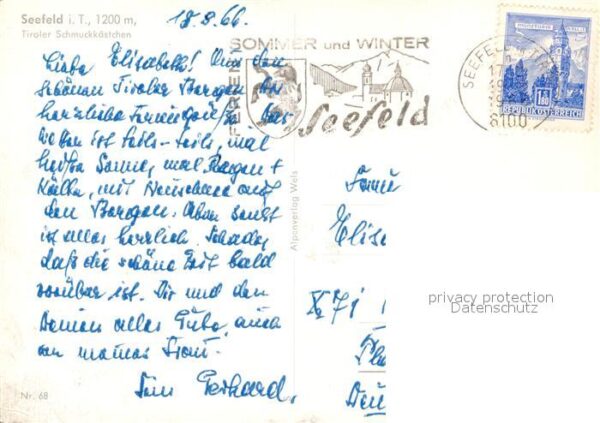 Seefeld i. T., 1200 m,
Tiroler Schmuckkästchen
18.8.66.
Liebe Elisabeth! Aus den
schönen Tiroler Bergen
herzliche Feriengrüße. Das
Wetter ist teils-teils, mal
heiße Sonne, mal Regen +
Kälte, mit Neuschnee auf
den Bergen. Aber sonst
ist alles herrlich. Schade,
daß die schöne Zeit bald
vorüber ist. Dir und den
Deinen alles Liebe, auch
Dein Gerhard.
Nr. 68
Alpenverlag Wels
FERIEN
SOMMER und WINTER
Seefeld
SEEFELD
8100
1.80
REPUBLIK ÖSTERREICH
Elise
X 71
privacy protection
Datenschutz